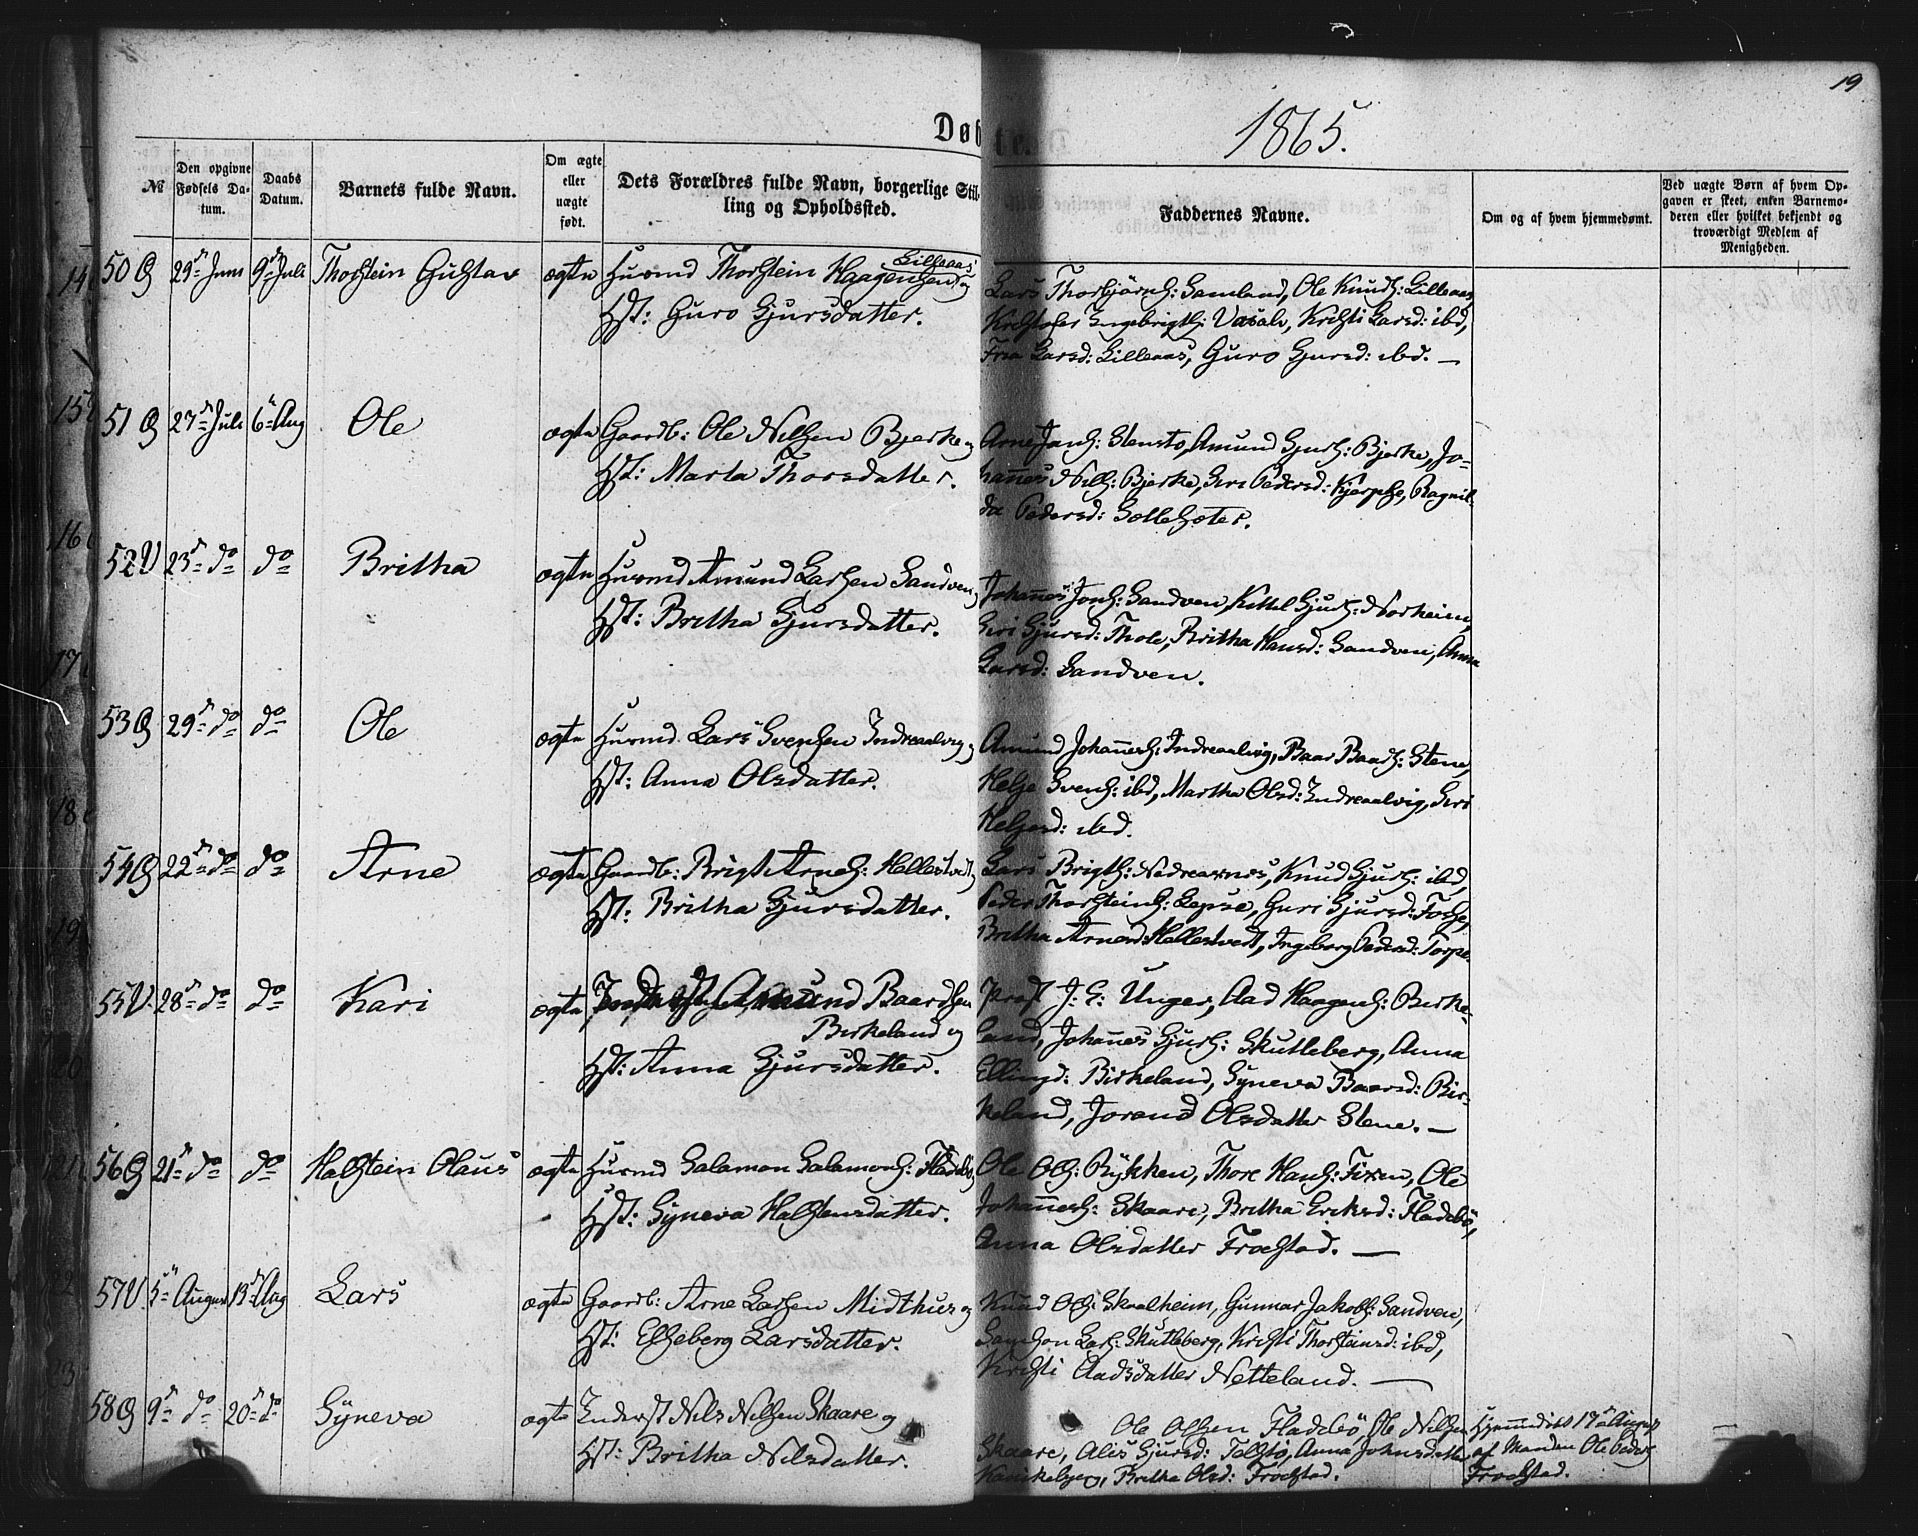 19
Døbte. 1865.
№
Den opgivne Fødsels Da-tum.
Daabs Datum.
Barnets fulde Navn.
Om ægte eller uægte født.
Dets Forældres fulde Navn, borgerlige Stil-ling og Opholdssted.
Faddernes Navne.
Om og af hvem hjemmedømt.
Ved uægte Børn af hvem Op-gaven er skeet, enten Barnemo-deren eller hvilket bekjendt og troværdigt Medlem af Menigheden.
50 G 29de Juni 9de Juli Thorstein Gustav ægte Huusmd Thorstein Haagensen Lilleaas og
Hst: Guro Sjursdatter.
Lars Thorbjørns: Samland, Ole Knuds: Lilleaas,
Kristofer Ingebrigts: Vasalv, Kristi Larsd: ibd,
Larsd: Lilleaas, Guro Sjursd: ibd. —
51 G 27de Juli 6te Aug Ole ægte Gaardb: Ole Nilsen Bjerke og
Hst: Marta Thorsdatter.
Arne Jans: Stensto, Amund Sjurs: Bjerke, Jo-
hannes Nils: Bjerke, Siri Pedersd: Kjerpe, Ragnil-
da Pedersd: Solleseter.
52 U 23de do do Britha ægte Huusmd Amund Larsen Sandven og
Hst: Britha Sjursdatter.
Johannes Jons: Sandven, Kittel Sjurs: Norheim,
Siri Sjursd: Thole, Britha Hansd: Sandven, Anna
Larsd: Sandven.
53 G 29de do do Ole ægte Huusmd. Lars Svensen Indreaalvig og
Hst: Anna Olsdatter.
Amund Johannes: Indreaalvig, Baar Baards: Stene,
Helje Svens: ibd, Martha Olsd: Indreaalvig, Siri
Heljesd: ibd.
54 G 22de do do Arne ægte Gaardb: Brigt Arnes: Hellestvedt og
Hst: Britha Sjursdatter.
Lars Brigts: Nedreaarnes, Knud Sjurs: ibd,
Peder Thorsteins: Lepsø, Guri Sjursd: Fosse,
Britha Arnesd: Hellestvedt, Ingeborg Pedersd: Torpe.
55 U. 28de do do Kari ægte Amund Baardsen
Birkeland og
Hst: Anna Sjursdatter.
Prost J: C: Unger, Aad Haagens: Birke-
land, Johannes Sjurs: Skutleberg, Anna
Ellingsd: Birkeland, Syneva Baarsd: Bir-
keland, Jorand Olsdatter Stene. —
56 G 21de do do Halstein Olaus ægte Huusmd Salamon Salamons: Fladebø og
Hst: Syneva Halstensdatter.
Ole Ols: Rykken, Thore Hans: Fixen, Ole
Johannes: Skaare, Britha Eriksd: Fladebø,
Anna Olsdatter Frøestad. —
57 U. 5te August 13de Aug Lars ægte Gaardb: Arne Larsen Midthus og
Hst: Elseberg Larsdatter.
Knud Ols: Skaalheim, Gunnar Jakobs: Sandven,
Samson Lars: Skutleberg, Kristi Thorsteinsd: ibd,
Kristi Aadsdatter Netteland. —
58 G 9de do 20de do Syneva ægte Inderst Nils Nilsen Skaare og
Hst: Britha Nilsdatter.
Ole Olsen Fladebø, Ole Nilsen
Skaare, Alis Sjursd: Tolstø, Anna Johnsdatter
Britha Olsd: Frøestad.
Hjemmedøbt 17de August
af Manden Ole Peders:
Frøestad.